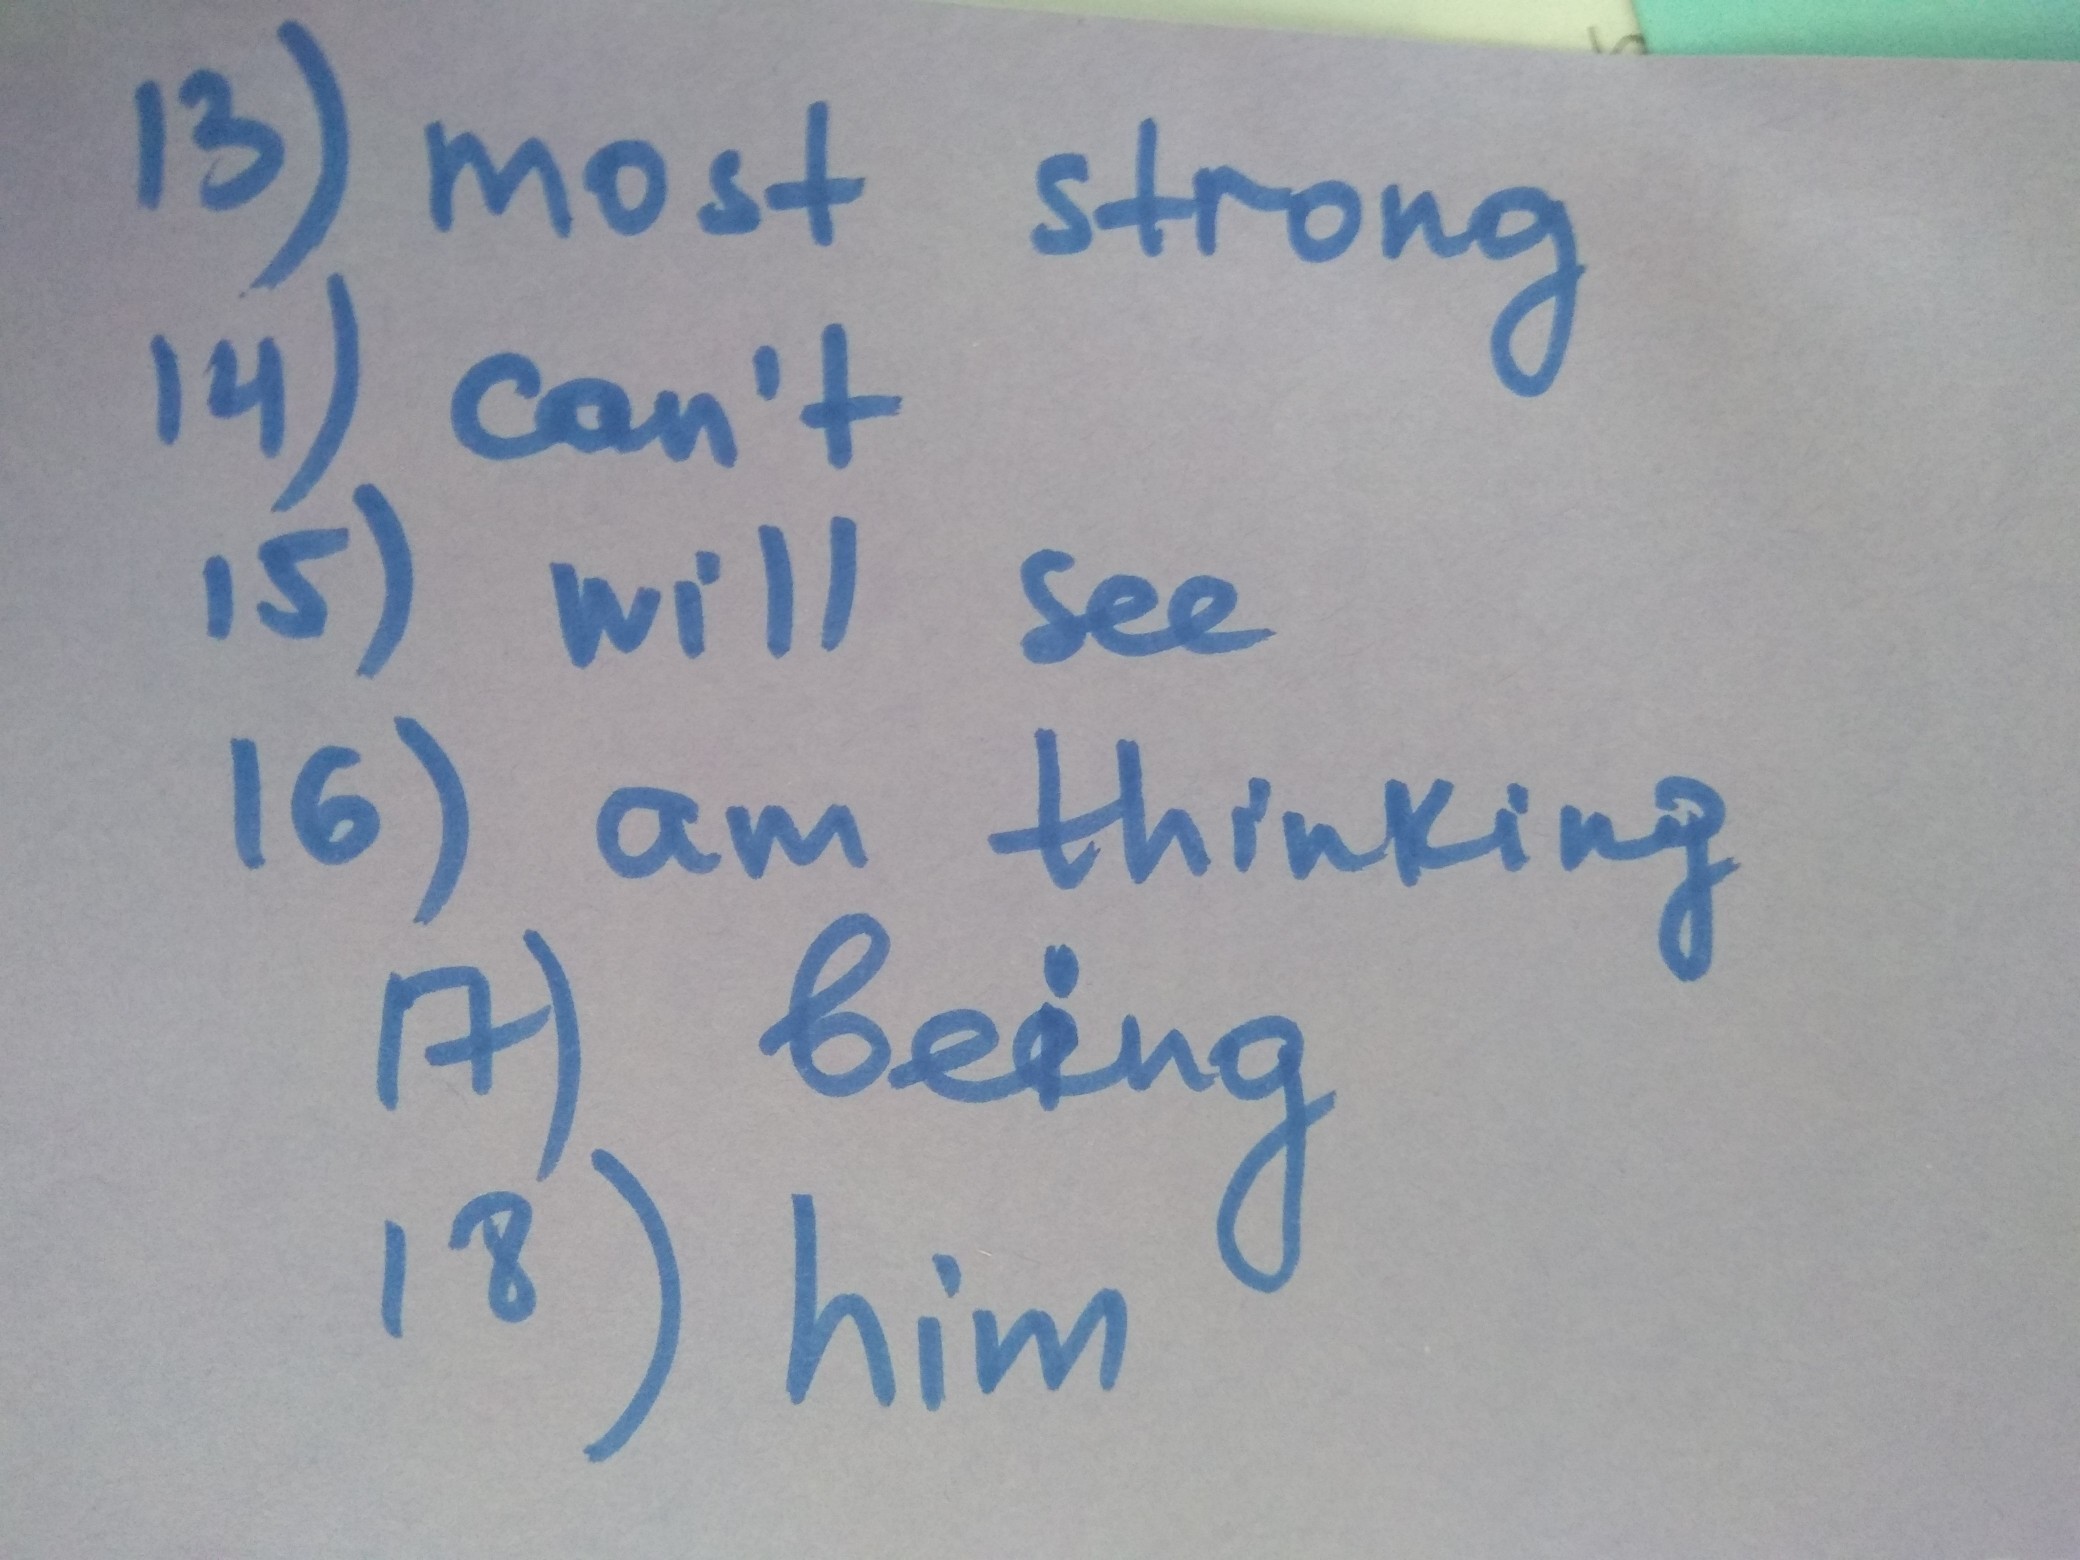 13) most strong
14) can't
15) will see
16) am thinking
17) being
18) him